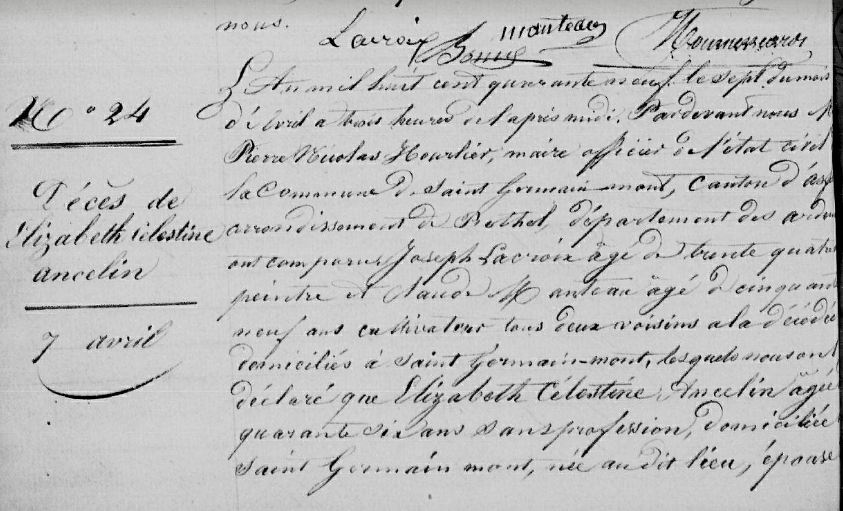 nous.
Lacroix manteau
N° 24
Décès de
Elizabeth Célestine
ancelin
7 avril
L'An mil huit cent quarante neuf, le sept du mois
d'Avril a trois heures de l'après midi. Pardevant nous M
Pierre Nicolas Hourlier, maire officier de l'état civil
la Commune de Saint Germain-mont, Canton d'asf
arrondissement de Rethel, département des arden
ont comparus Joseph Lacroix âgé de trente quatre
peintre et claude Manteau âgé de cinquante
neuf ans cultivateur tous deux voisins a la décédée
domiciliés à Saint Germain-mont, lesquels nous ont
déclaré que Elizabeth Célestine Ancelin âgée
quarante six ans sans profession, domiciliée
Saint Germain mont, née au dit lieu, épouse